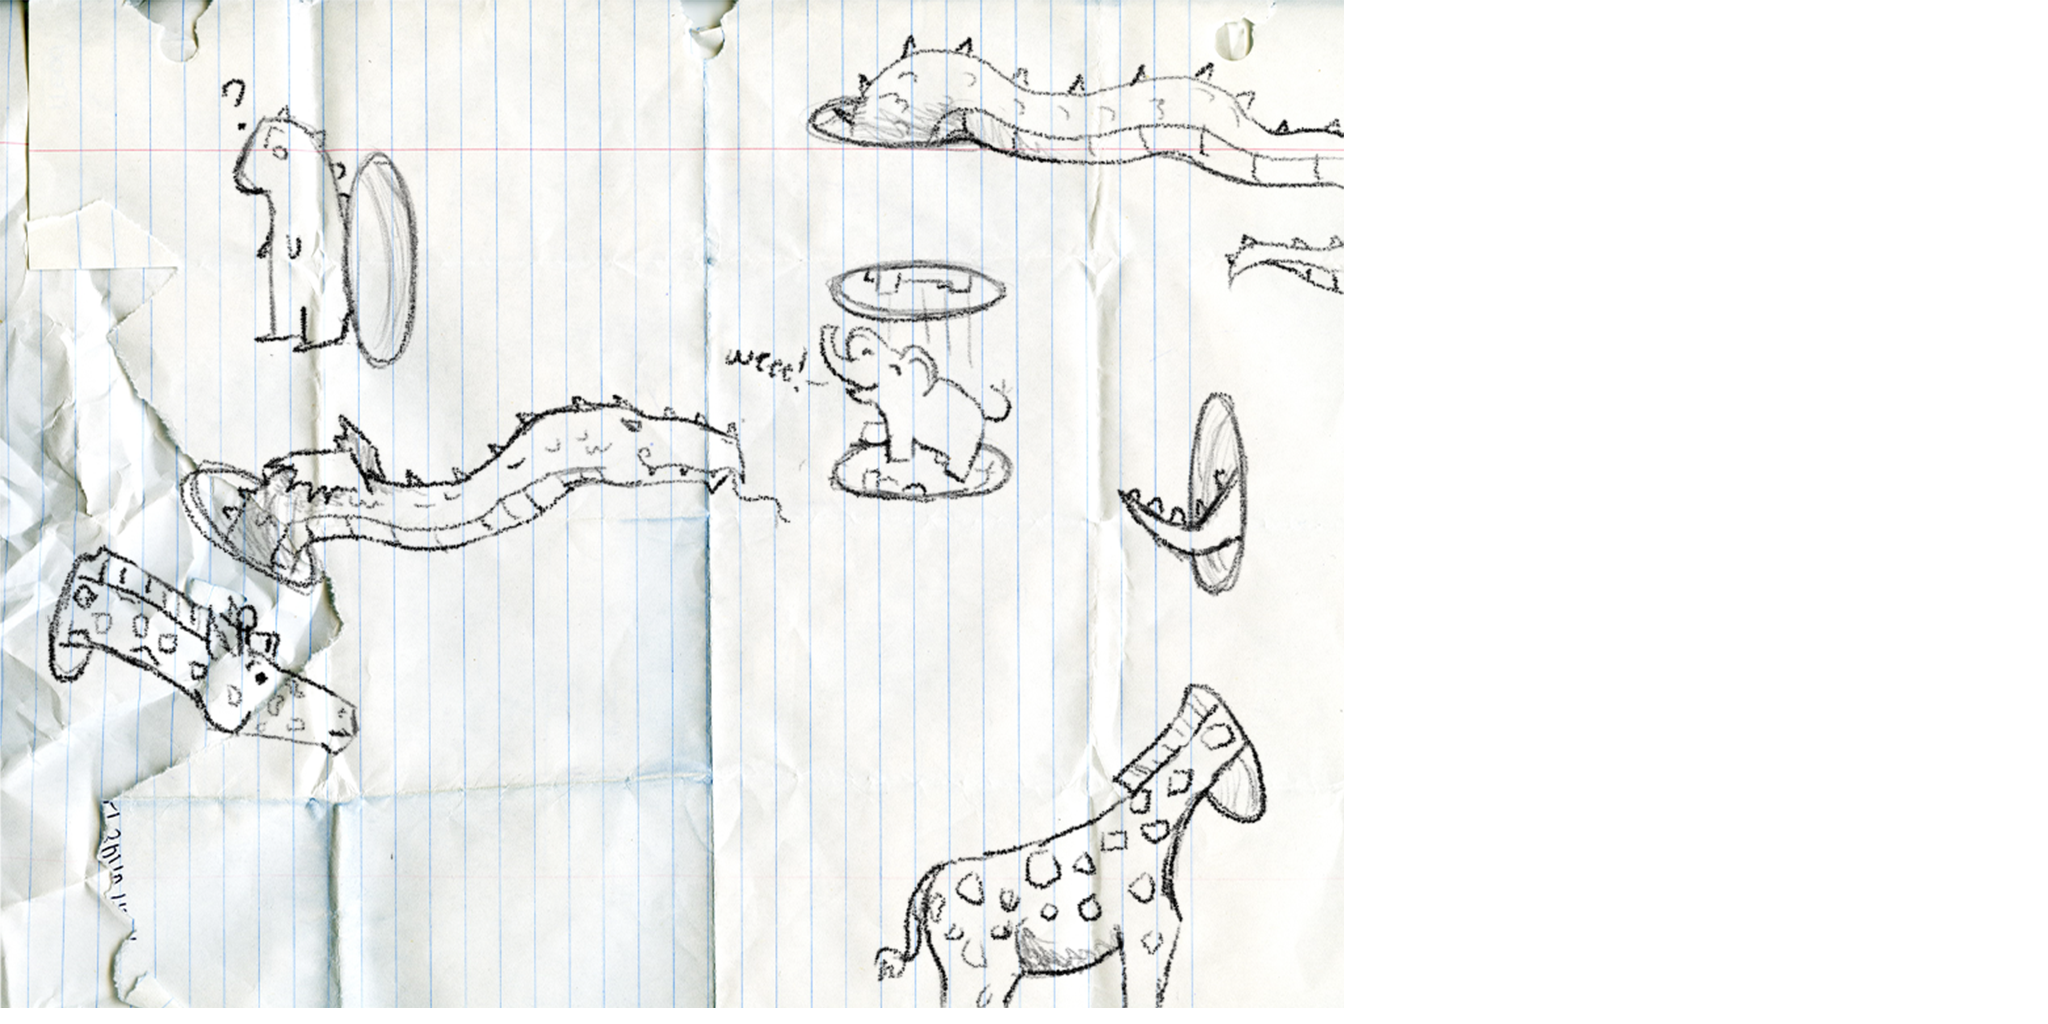 ?
weee!